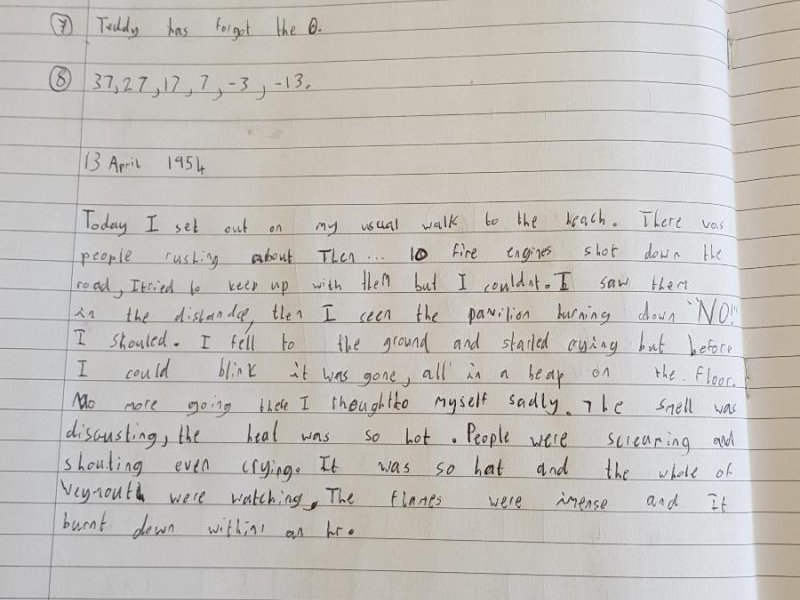 ⑦ Teddy has forgot the 0.
⑧ 37,27,17,7,-3,-13.
13 April 1954
Today I set out on my usual walk to the beach. There was
people rushing about Then... 10 fire engines shot down the
road, I tried to keep up with them but I couldnt. I saw them
in the distance, then I seen the pavilion burning down "NO!"
I shouted. I fell to the ground and started crying but before
I could blink it was gone, all in a heap on the floor.
No more going there I thought to myself sadly. The smell was
discusting, the heat was so hot. People were screaming and
shouting even crying. It was so hot and the whole of
Weymouth were watching. The flames were imense and it
burnt down within an hr.